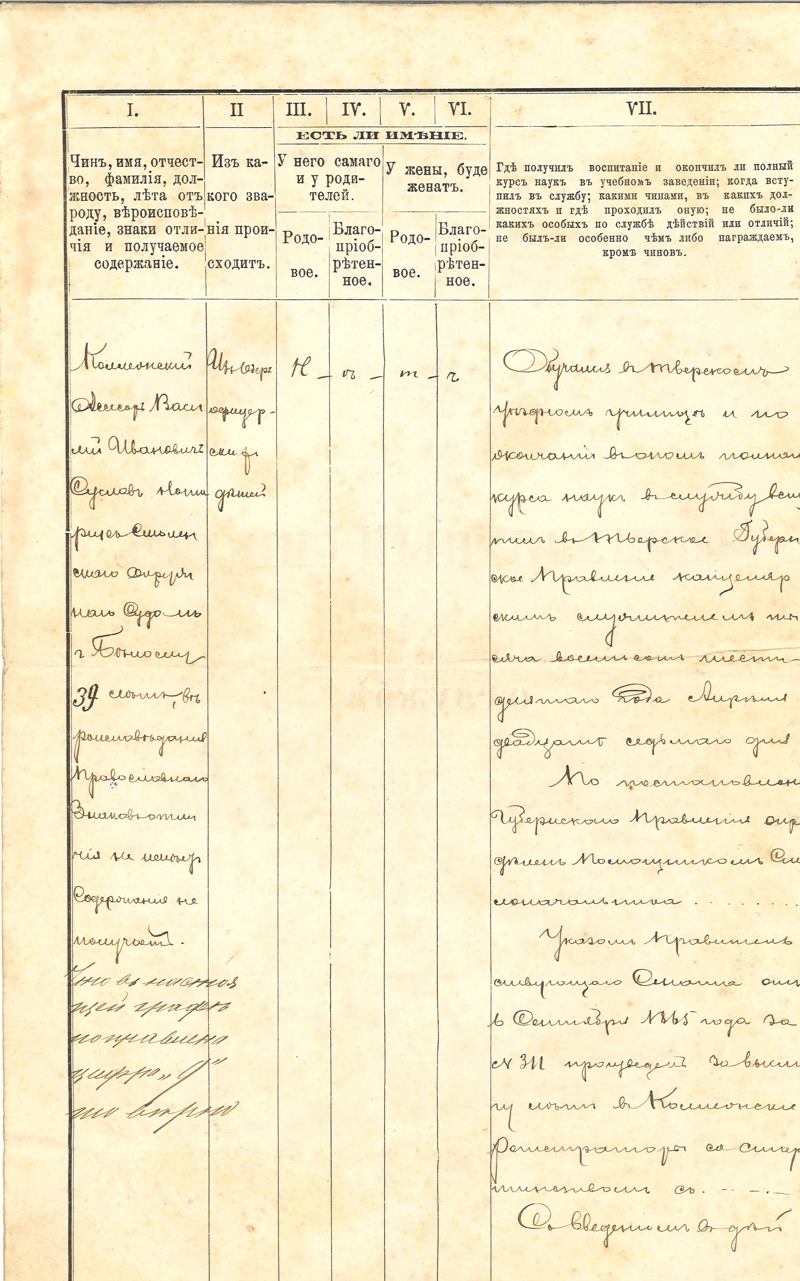 I.
II
III.
IV.
V.
VI.
VII.
ЕСТЬ ЛИ ИМѢНІЕ.
Чинъ, имя, отчест-
во, фамилія, дол-
жность, лѣта отъ
роду, вѣроисповѣ-
даніе, знаки отли-
чія и получаемое
содержаніе.
Изъ ка-
кого зва-
нія прои-
сходитъ.
У него самаго
и у роди-
телей.
У жены, буде
женатъ.
Родо-
вое.
Благо-
пріоб-
рѣтен-
ное.
Родо-
вое.
Благо-
пріоб-
рѣтен-
ное.
Гдѣ получилъ воспитаніе и окончилъ ли полный
курсъ наукъ въ учебномъ заведеніи; когда всту-
пилъ въ службу; какими чинами, въ какихъ дол-
жностяхъ и гдѣ проходилъ оную; не было-ли
каких особыхъ по службѣ дѣйствій или отличій;
не былъ-ли особенно чѣмъ либо награждаемъ,
кромѣ чиновъ.
Коллежскій
Асесоръ Васи
лій Ивановичъ
Сусловъ Нота
ріусъ Смолен
скаго Окруж
наго Суда въ
г
39 лѣтъ, вѣ
роисповѣданія
Православнаго
Знаковъ отли
чія не имѣетъ
Содержанія не
получаетъ.
Что въ настоя
щей графѣ
поправлено
цифра „9"
то вѣрно
Изъ Оберъ
офицер-
скихъ
дѣтей
Н - ѣ - т - ъ
Обучался въ Тверскомъ
Уѣздномъ училищѣ и по
окончаніи въ ономъ полнаго
курса наукъ въ службу всту
пилъ въ Тверское Губерн
ское Правленіе канцеляр
скимъ служителемъ ты
сяча восемьсотъ шести-
десятаго года Апрѣля
двадцать седьмаго дня
По постановлен
Губернскаго Правленія опр
дѣленъ Помощникомъ Сто
лоначальника . . . . . . . .
Указомъ Правитель
ствующаго Сената отъ
6 Сентября 1865 года за
№ 311 произведенъ за выслу
гу лѣтъ въ Коллежскіе
Регистраторы со стар
шинствомъ съ. - - . -
Со введеніемъ въ дѣй